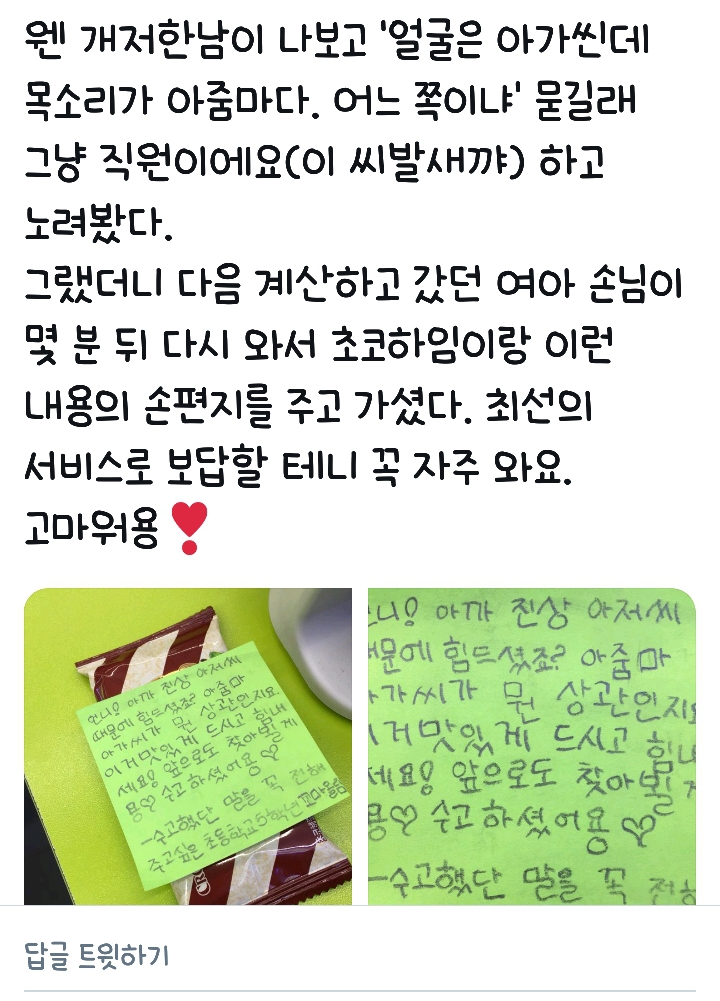 웬 개저한남이 나보고 '얼굴은 아가씬데
목소리가 아줌마다. 어느 쪽이냐' 묻길래
그냥 직원이에요(이 씨발새꺄) 하고
노려봤다.
그랬더니 다음 계산하고 갔던 여아 손님이
몇 분 뒤 다시 와서 초코하임이랑 이런
내용의 손편지를 주고 가셨다. 최선의
서비스로 보답할 테니 꼭 자주 와요.
고마워용❣️
언니! 아까 진상 아저씨
때문에 힘드셨죠? 아줌마
아가씨가 뭔 상관인지요.
이거 맛있게 드시고 힘내
세요! 앞으로도 찾아뵐게
용♡ 수고하셨어용♡
-수고했단 말을 꼭 전해
주고싶은 초등학교 5학년 꼬마올림
언니! 아까 진상 아저씨
때문에 힘드셨죠? 아줌마
아가씨가 뭔 상관인지요
이거 맛있게 드시고 힘내
세요! 앞으로도 찾아뵐게
용♡ 수고하셨어용♡
-수고했단 말을 꼭 전해
답글 트윗하기